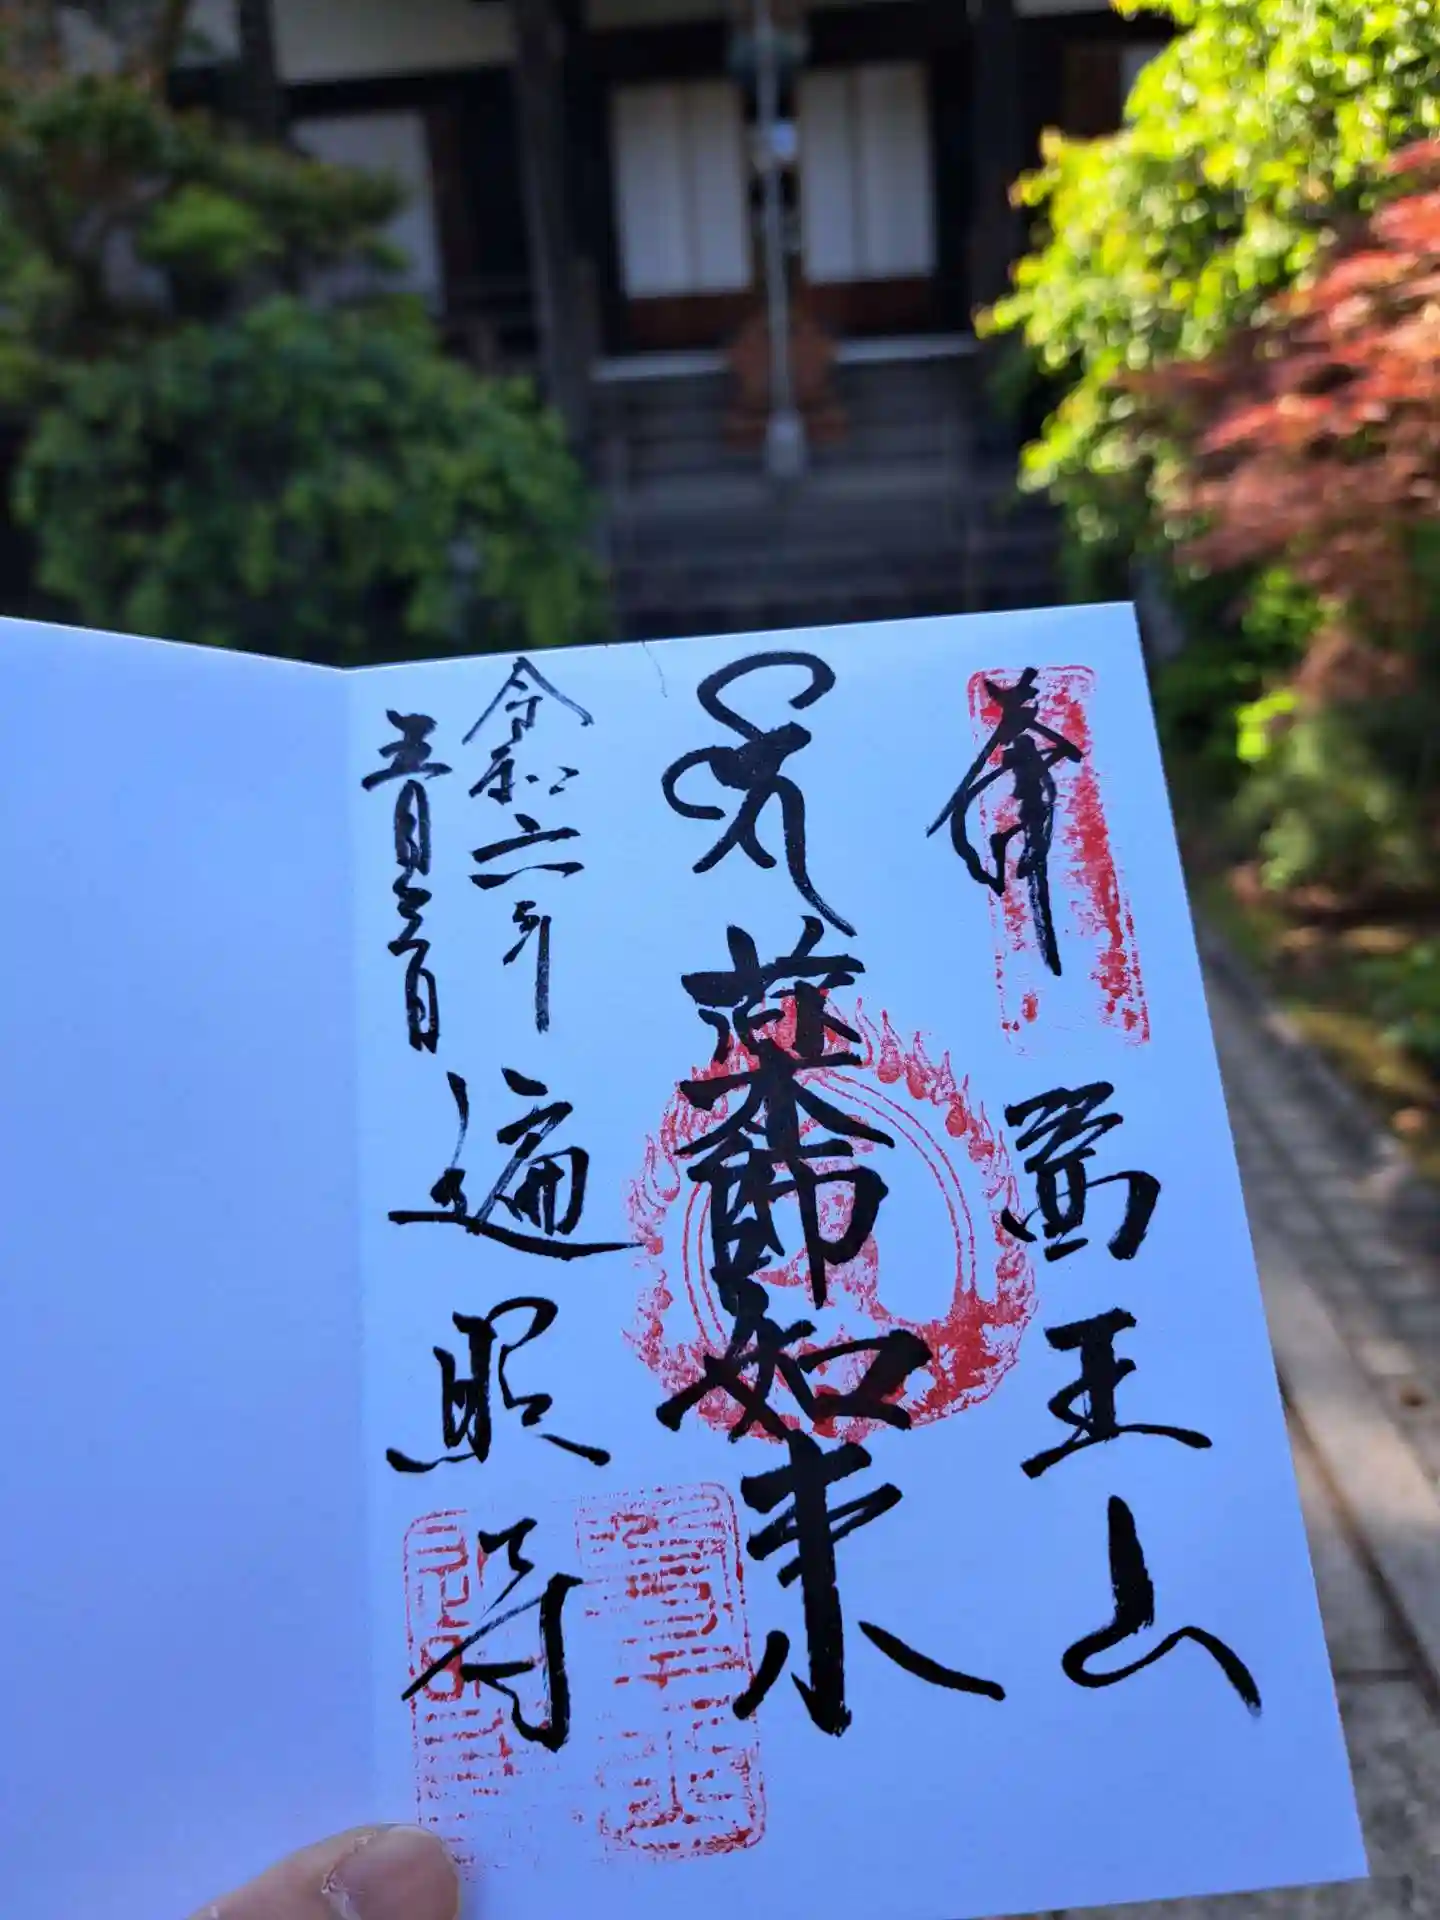 奉拝
醫王山
薬師如来
令和六年
五月
遍照寺